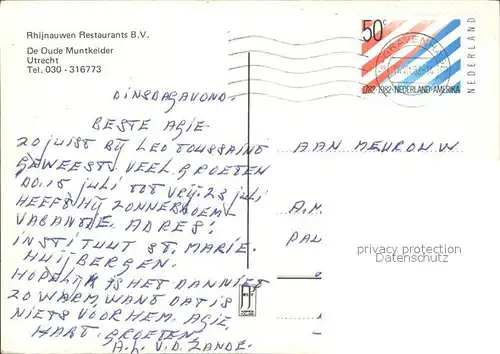 Rhijnauwen Restaurants B.V.
De Oude Muntkelder
Utrecht
Tel. 030 - 316773
50c
NEDERLAND
'S-GRAVENHAGE
1782-1982·NEDERLAND-AMERIKA
DINSDAGAVOND-
BESTE AGIE-
ZOJUIST BIJ LEO TOUSSAINT
GEWEEST. VEEL GROETEN
DO. 15 JULI TOT VRIJ. 23 JULI
HEEFT HIJ ZONNEBLOEM-
VAKANTIE. ADRES:
INSTITUUT ST. MARIE.
HUIJBERGEN.
HOPELIJK IS HET DAN NIET
ZO WARM, WANT DAT IS
NIETS VOOR HEM. AGIE,
HART. GROETEN
A.L. V.D. ZANDE.
AAN MEVROUW
A.M.
PAU
privacy protection
DATASCHUTZ